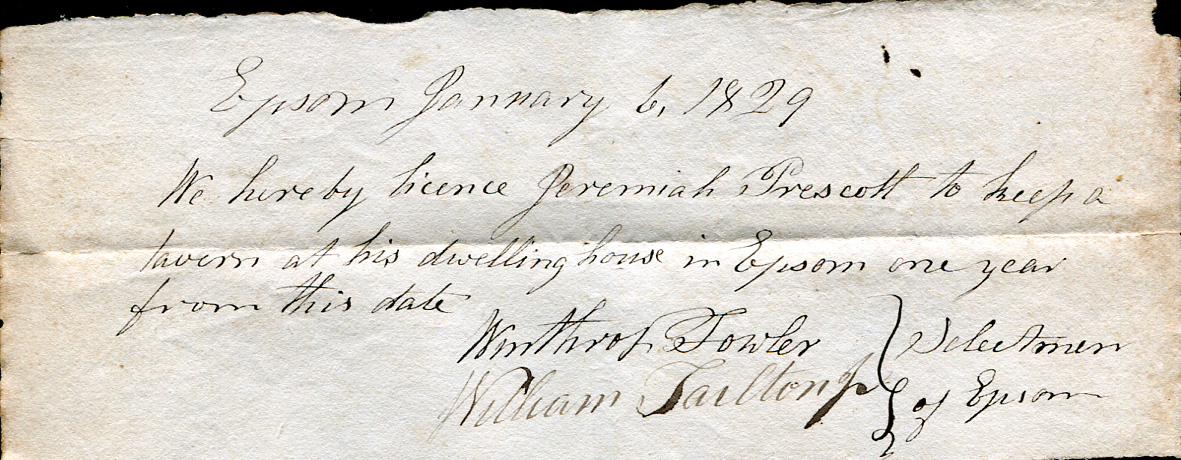 Epsom January 6, 1829
We hereby licence Jeremiah Prescott to keep a
tavern at his dwelling house in Epsom one year
from this date
Winthrop Fowler } Selectmen
William Tarlton Jr } of Epsom